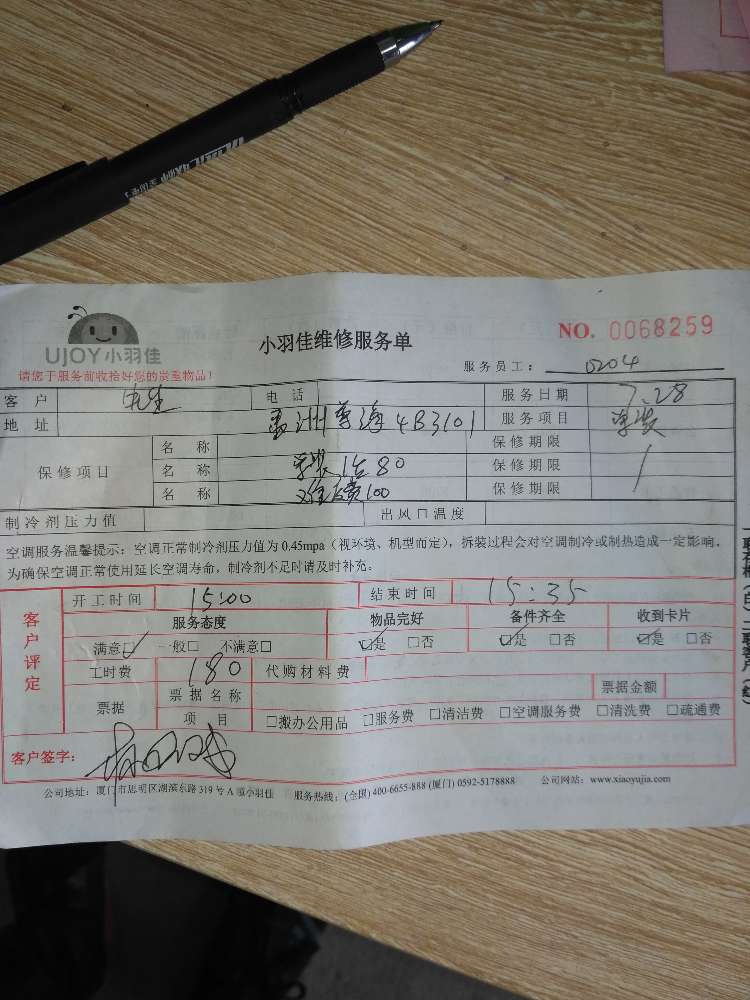 UJOY小羽佳
小羽佳维修服务单
NO. 0068259
请您于服务前收拾好您的贵重物品!
服务员工: 0204
客 户
电 话
服务日期 7.28
地 址 4B3101
服务项目 单装
保修项目
名 称
保修期限
名 称 单装1台80
保修期限
名 称 100
保修期限
制冷剂压力值
出风口温度
空调服务温馨提示:空调正常制冷剂压力值为0.45mpa(视环境、机型而定),拆装过程会对空调制冷或制热造成一定影响,
为确保空调正常使用延长空调寿命,制冷剂不足时请及时补充。
客户评定
开工时间 15:00
结束时间 15:35
服务态度
物品完好
备件齐全
收到卡片
满意☑ 一般□ 不满意□
☑是 □否
☑是 □否
☑是 □否
工时费 180
代购材料费
票据
票据名称
票据金额
项 目
□搬办公用品 □服务费 □清洁费 □空调服务费 □清洗费 □疏通费
客户签字:
公司地址:厦门市思明区湖滨东路319号A 小羽佳 服务热线:(全国)400-6655-888 (厦门) 0592-5178888 公司网站:www.xiaoyujia.com